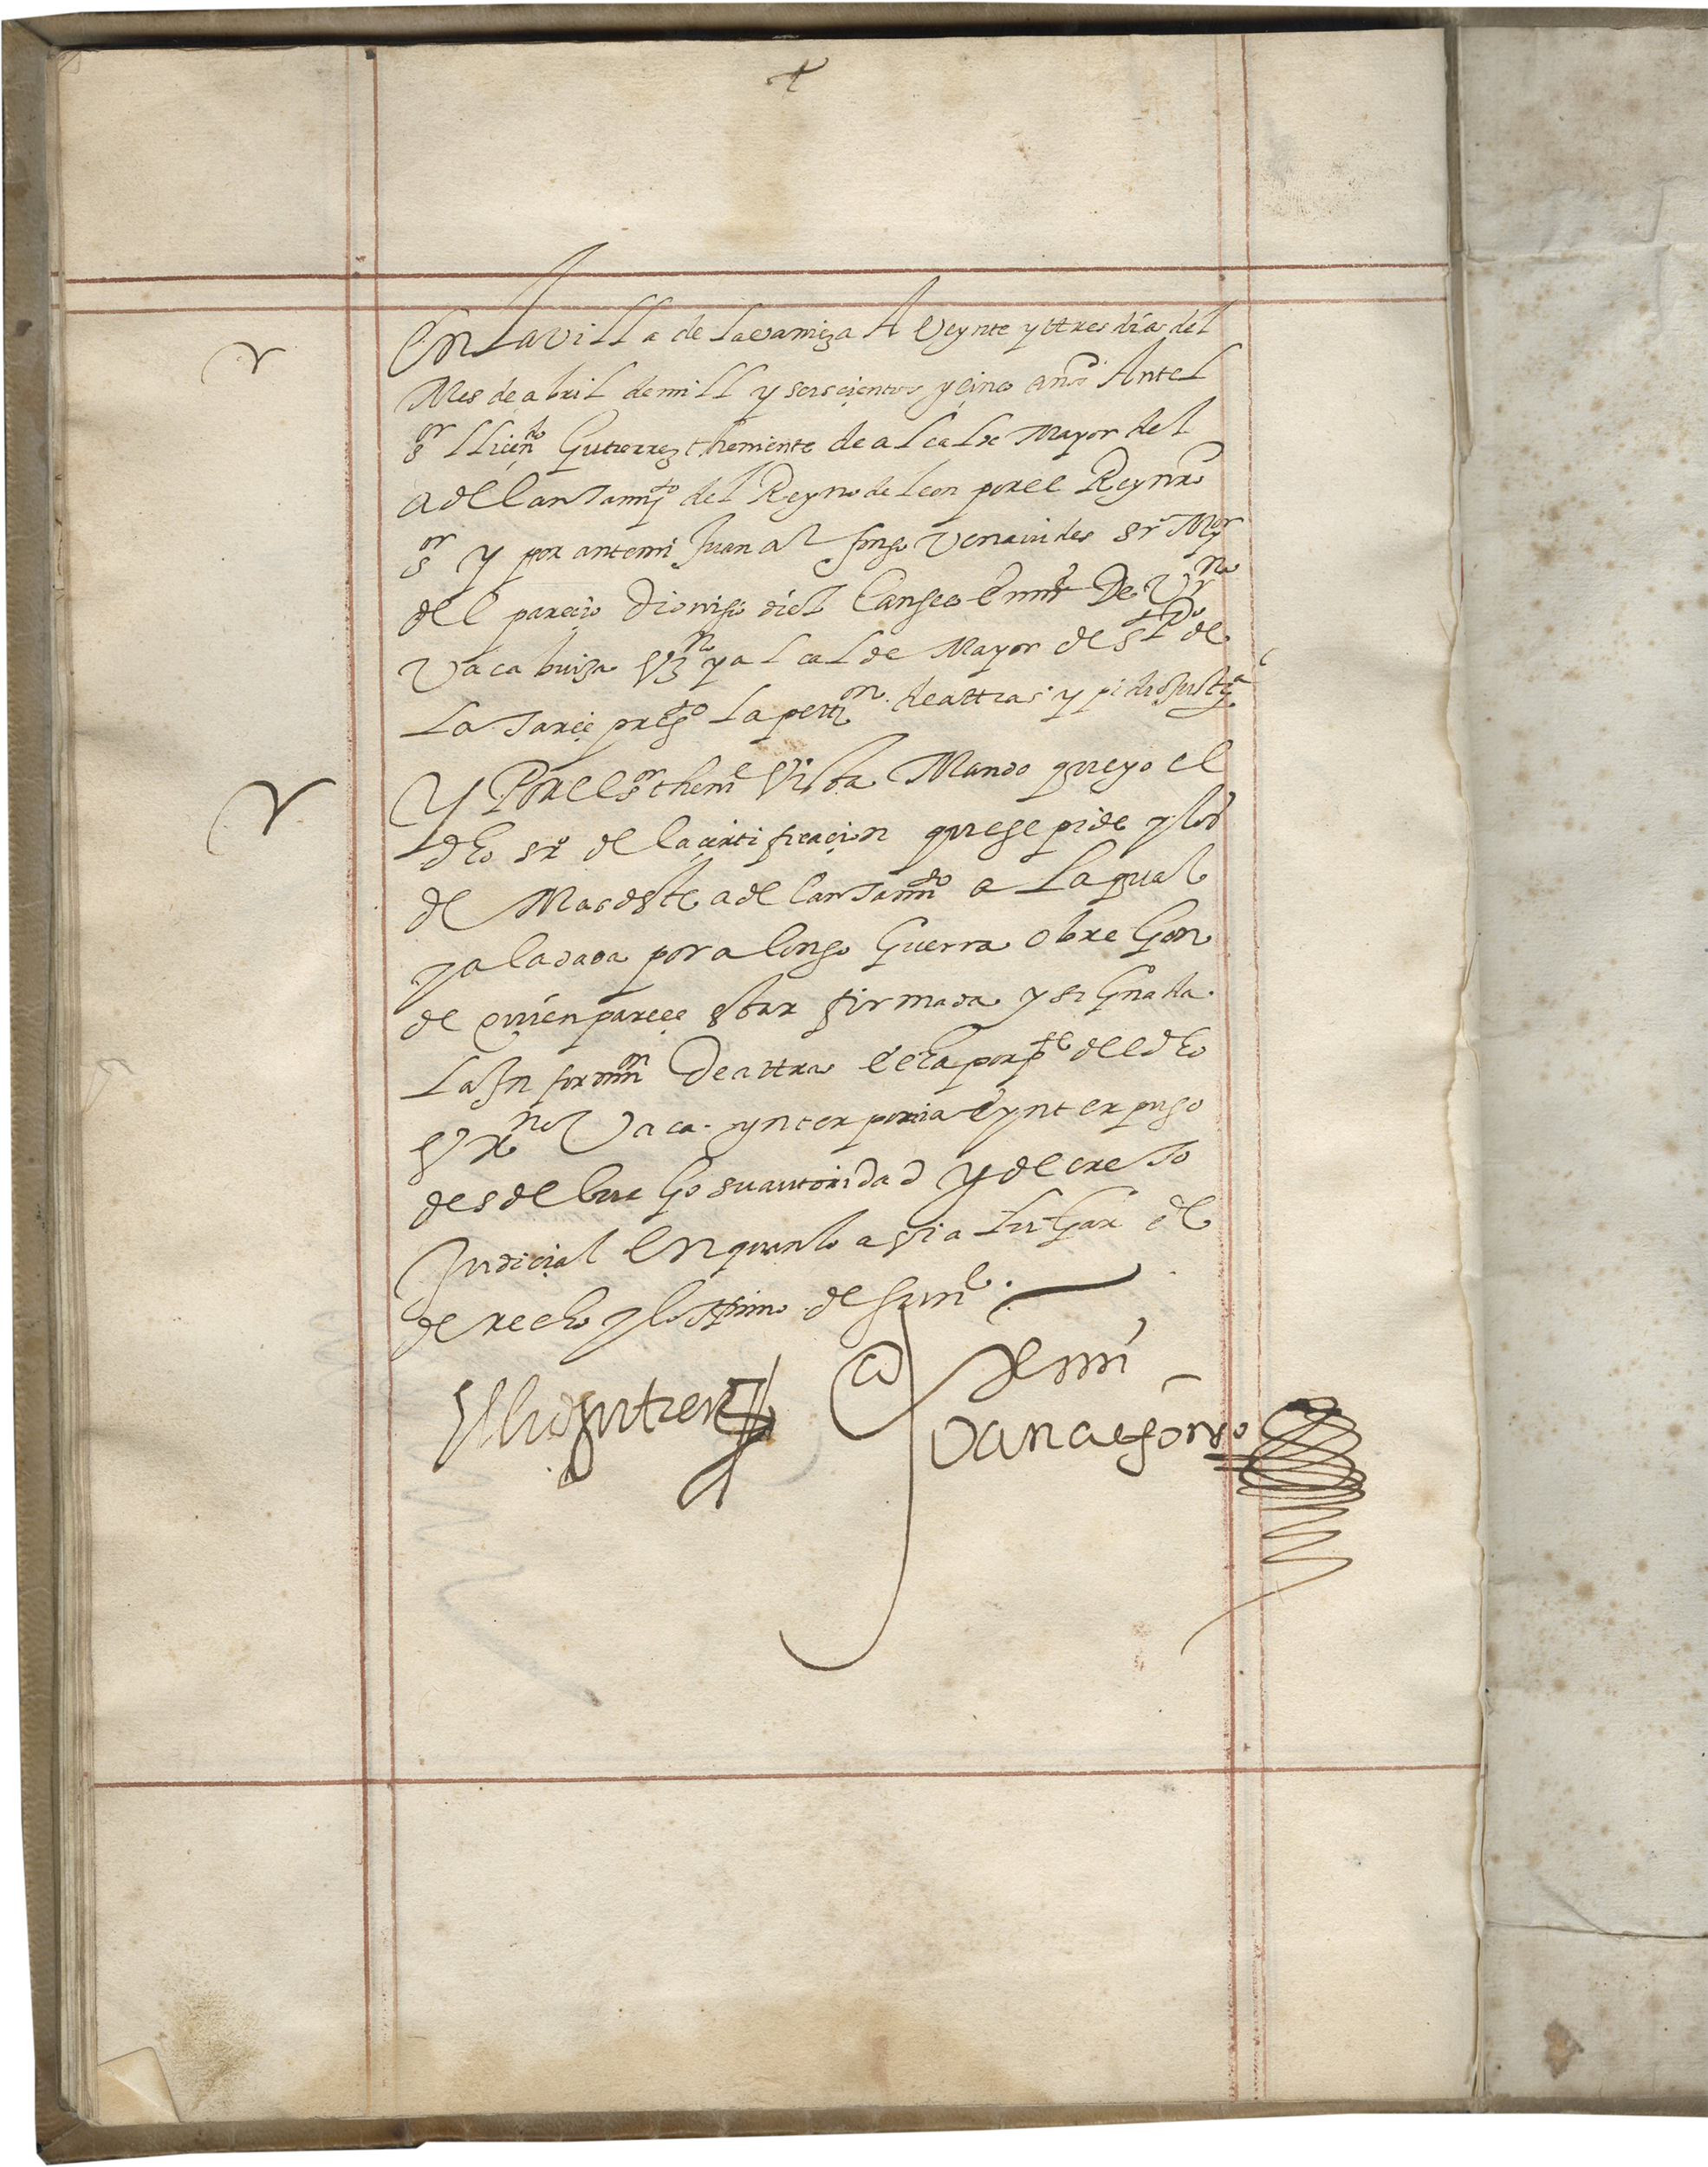 En la villa de la vaniza A veynte y ttres días del
Mes de abril de mill y seiscientos y cinco anos Ante el
sor llicendo Gutierrez theniente de alcalde Mayor del
adellantammto del Reyno de leon por el Rey nro
sor y por ante mi Juan alfonso venauides srº Mor
del parecio Dionisio diez Canseco En nre De
Vaca buiza vzn y alcalde Mayor de de
La presto la pettion de attras y pidio Justiça
Y Por el sor thene Vista Mando que yo el
dho srº de la certificacion que se pide y los
de Mas deste adellantammto a la qual
y a la dada por alonso Guerra obregon
de quien parece estar firmada y signada
La Informon de attras hecha por pte del dho
Vaca ynterponia E ynterpuso
desde luego su autoridad y decreto
Judicial En quanto avia lugar de
derecho y lo ffirmo de su ne
El licdo gutierrez Ante mi
Juan alfonso